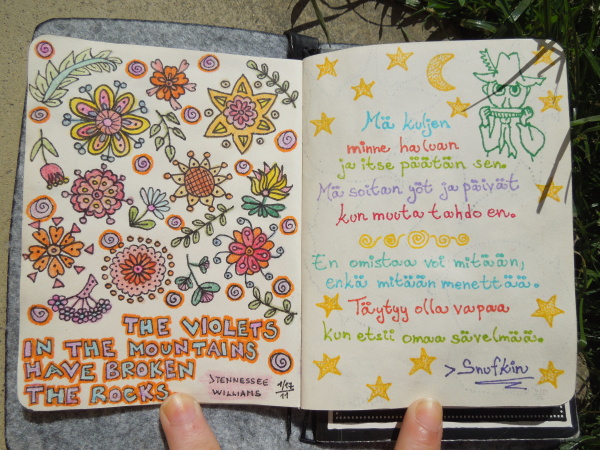 THE VIOLETS
IN THE MOUNTAINS
HAVE BROKEN
THE ROCKS.
TENNESSEE
WILLIAMS
Mä kuljen
minne haluan
ja itse päätän sen.
Mä soitan yöt ja päivät
kun muuta tahdo en.
En omistaa voi mitään,
enkä mitään menettää.
Täytyy olla vapaa
kun etsii omaa sävelmää.
>Snufkin